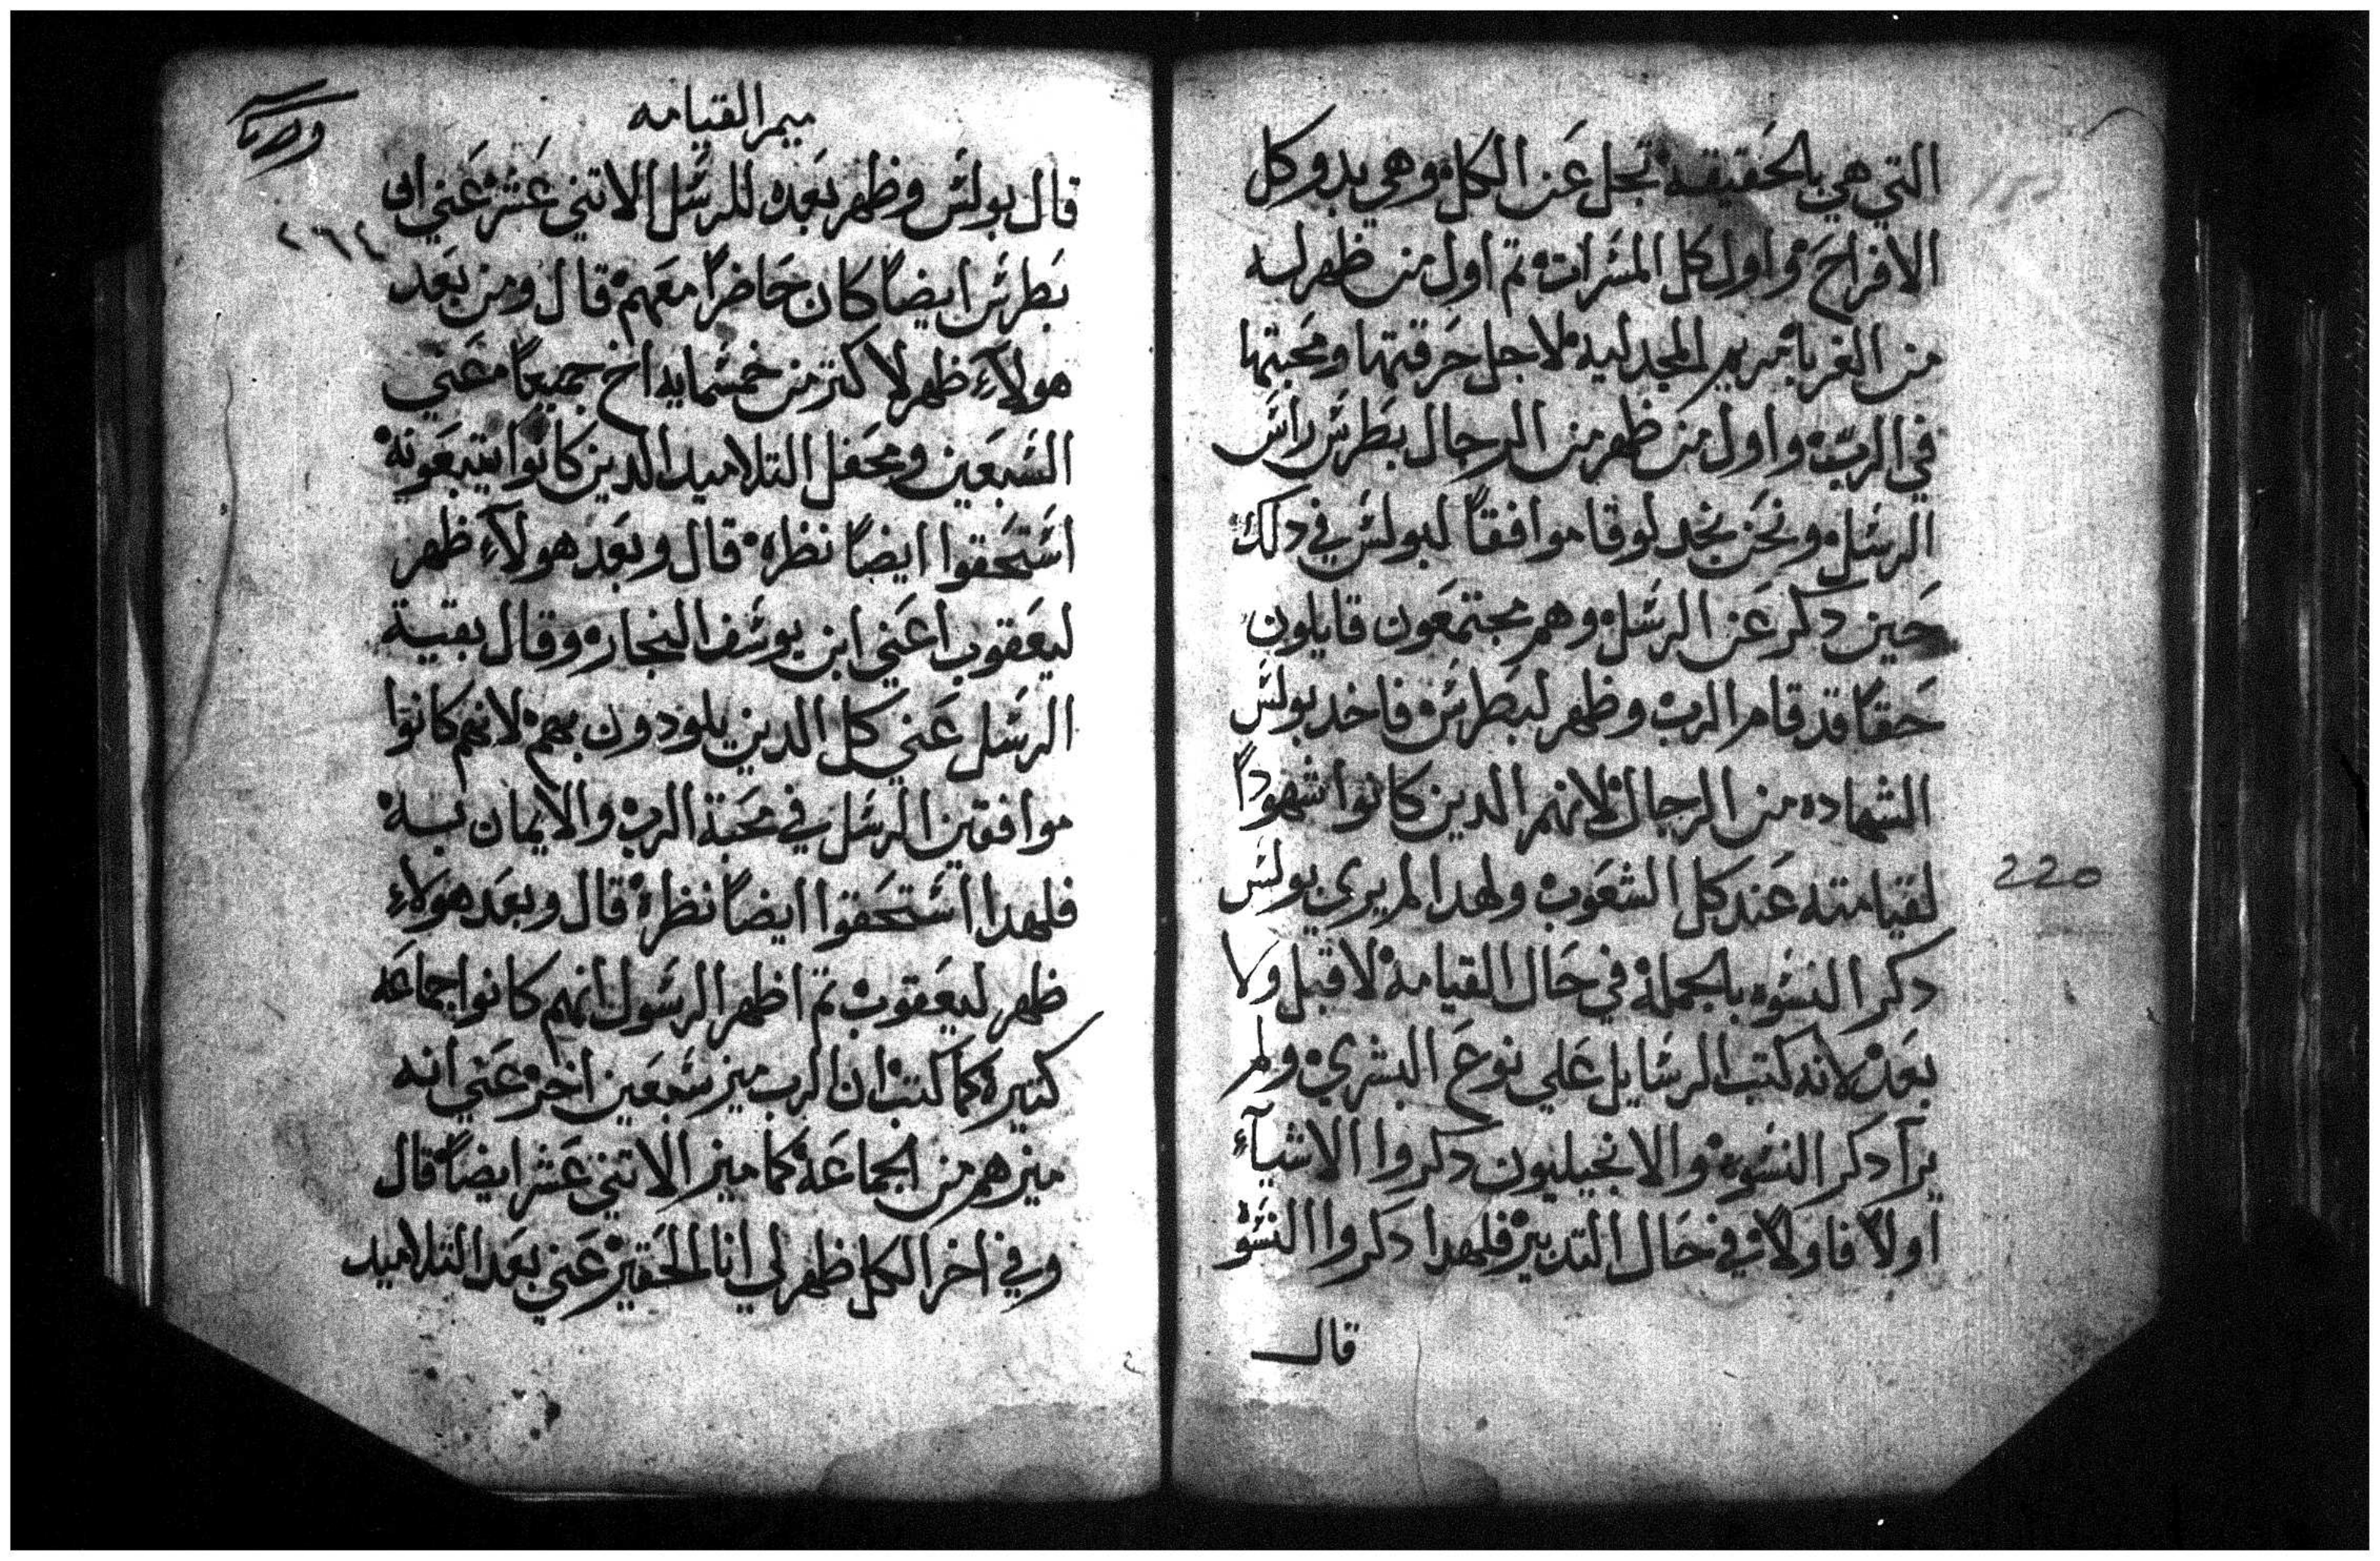 التي هي بالحقيقه تجل عن الكل وهي بدو كل
الافراح واول كل المسرات تم اول من ظهر له
من الغربا مريم المجدليه لاجل حرقتها ومحبتها
في الرب واول من ظهر من الرجال بطرس راس
الرسل ونحن نجد لوقا موافقاً لبولس في دلك
حين دكر عن الرسل وهم مجتمعون قايلون
حقاً قد قام الرب وظهر لبطرس فاخد بولس
الشهاده من الرجال لانهم الدين كانوا شهوداً
لقيامته عند كل الشعوب ولهدا لم يري بولس
دكر النسوه بالجملة في حال القيامة لا قبل ولا
بعد لانه كتب الرسايل علي نوع البشري ولم
يرا دكر النسوه والانجيليون دكروا الاشيآء
اولاً فاولاً في حال التدبير فلهدا دكروا النسوه
قال
220
ميمر القيامه
٢٦٤
قال بولس وظهر بعده للرسل الاتني عشر عني ان
بطرس ايضاً كان حاضراً معهم قال ومن بعد
هولآء ظهر لاكتر من خمسمايه اخ جميعاً معني
السبعين ومحفل التلاميد الدين كانوا يتبعونه
استحقوا ايضاً نظره قال وبعد هولآء ظهر
ليعقوب اعني ابن يوسف النجار وقال بقية
الرسل عني كل الدين يلودون بهم لانهم كانوا
موافقين الرسل في محبة الرب والايمان به
فلهدا استحقوا ايضاً نظره قال وبعد هولاء
ظهر ليعقوب تم اظهر الرسول انهم كانوا جماعه
كتيرة كما كتب ان الرب ميز سبعين اخر عني انه
ميزهم من الجماعة كما ميز الاتني عشر ايضاً قال
وفي اخر الكل ظهر لي انا الحقير عني بعد التلاميد